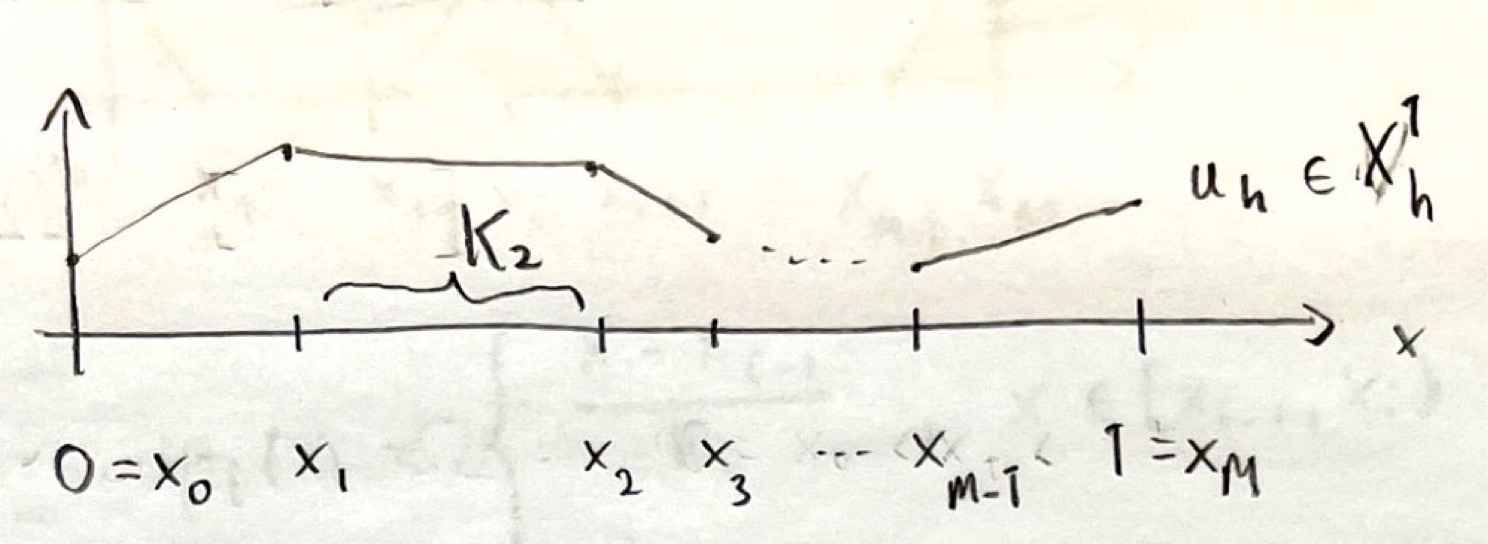 u_h ∈ X_h^1
K_2
x
0 = x_0 x_1 x_2 x_3 ... x_{M-1} 1 = x_M